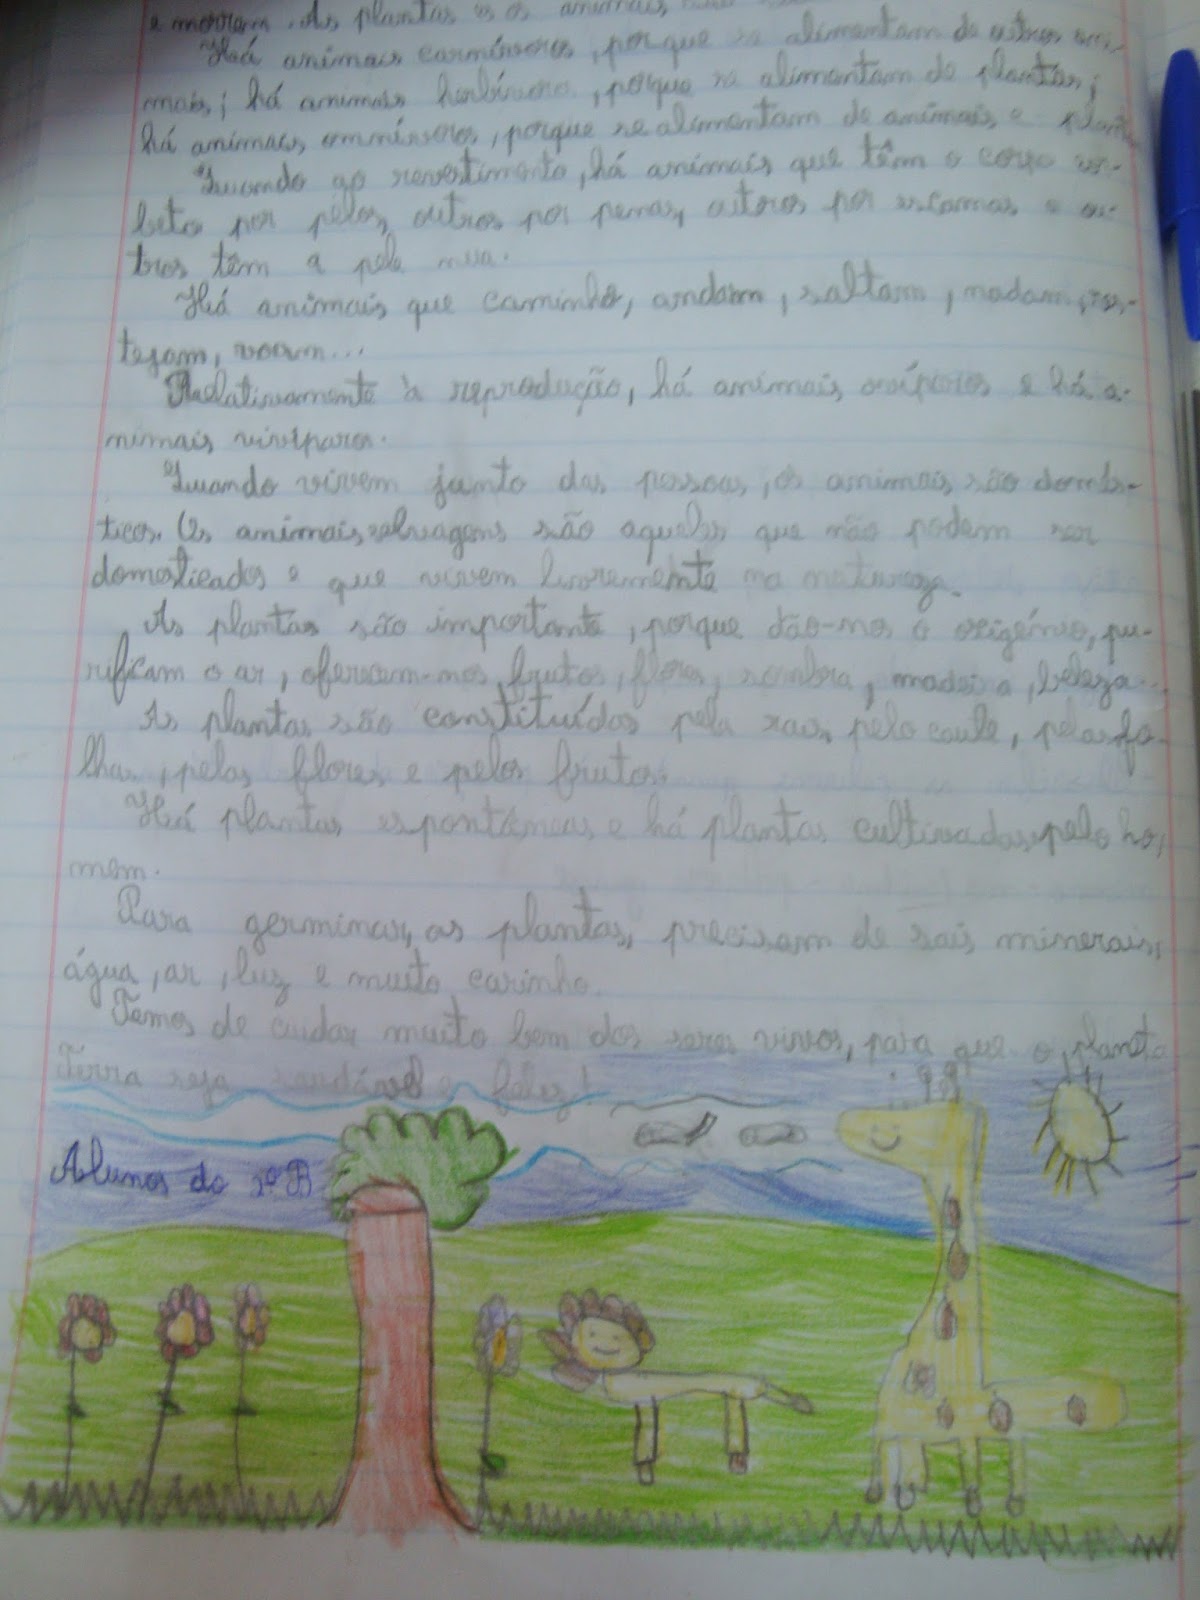 e morrem. As plantas e os animais são
Há animais carnívoros, porque se alimentam de outros ani-
mais; há animais herbívoros, porque se alimentam de plantas;
há animais omnívoros, porque se alimentam de animais e plantas
Quando ao revestimento, há animais que têm o corpo co-
berto por pelos, outros por penas, outros por escamas e ou-
tros têm a pele nua.
Há animais que caminho, andam, saltam, nadam, ras-
tejam, voam...
Relativamente à reprodução, há animais ovíparos e há a-
nimais vivíparos.
Quando vivem junto das pessoas, os animais são domés-
ticos. Os animais selvagens são aqueles que não podem ser
domesticados e que vivem livremente na natureza.
As plantas são importante, porque dão-nos o oxigénio, pu-
rificam o ar, oferecem-nos frutos, flores, sombra, madeira, beleza...
As plantas são constituídas pela raiz, pelo caule, pelas fo-
lhas, pelas flores e pelos frutos.
Há plantas espontâneas e há plantas cultivadas pelo ho-
mem.
Para germinar, as plantas, precisam de sais minerais,
água, ar, luz e muito carinho.
Temos de cuidar muito bem dos seres vivos, para que o planeta
Terra seja saudável e feliz!
Alunos do 2º B